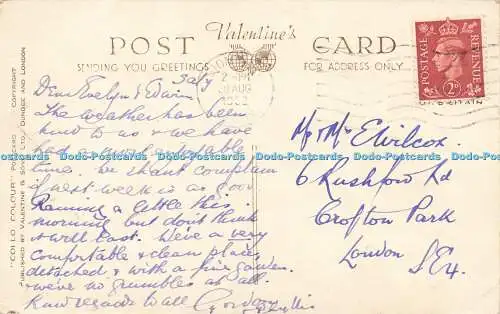 Valentine's
POST CARD
SENDING YOU GREETINGS
FOR ADDRESS ONLY
POSTAGE REVENUE
2D
2 - PM
AUG
"COLLO COLOUR" POSTCARD COPYRIGHT
PUBLISHED BY VALENTINE & SONS LTD. DUNDEE AND LONDON
Saty
Dear Evelyn & Edwin
The weather has been
kind to us & we have
had a most enjoyable
time. We shant complain
if next week is as good
Raining a little this
morning but don't think
it will last. We're a very
comfortable & clean place,
detached & with a fine garden.
we've no grumbles at all.
Kind regards to all
Gordon
Phyllis
Mr & Mrs E Wilcox.
6 Rushford Rd
Crofton Park
London
S.E.4.
Dodo-Postcards Dodo-Postcards Dodo-Postcards Dodo-Postcards Dodo-Postcards Dodo-Postcards